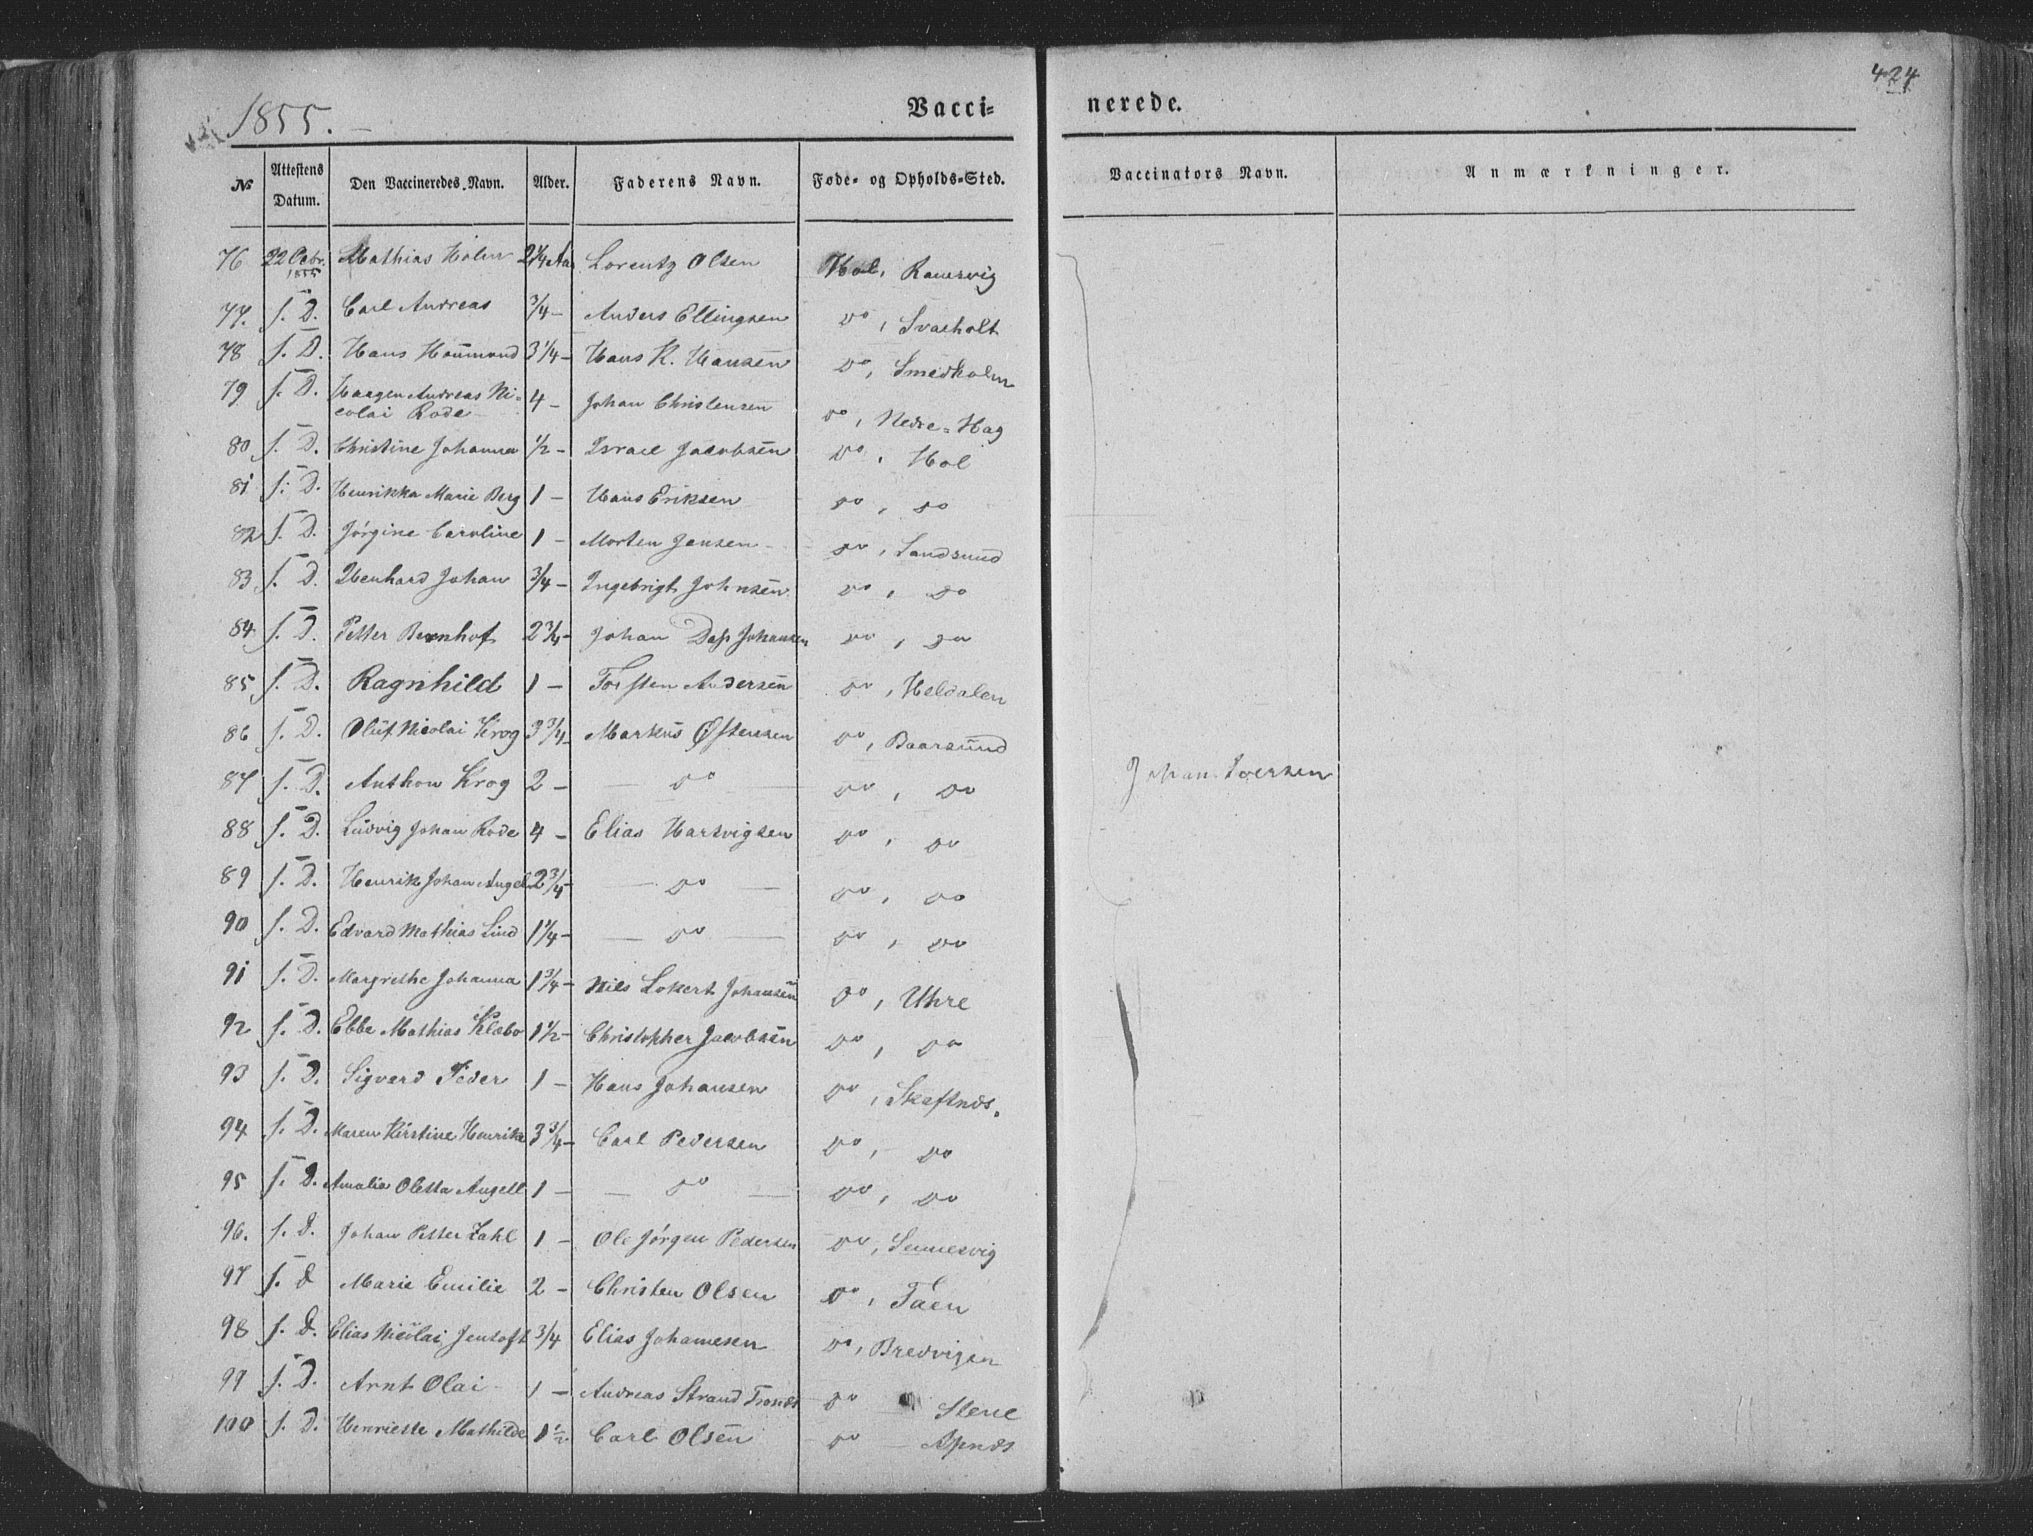 424
1855.
Vacci=
nerede.
№ Attestens Datum. Den Vaccineredes Navn. Alder. Faderens Navn. Føde- og Opholds-Sted. Vaccinators Navn. Anmærkninger.
76 22 Octbr. 1855 Mathias Holm 2 1/4 Aar Lorentz Olsen Hol, Ramsvig
77. s. D. Carl Andreas 3/4 – Anders Ellingsen do, Svarholt
78 s. D. Hans Hounmond 3 1/4 – Hans K. Hansen do, Smedholm
79 s. D. Haagen Andreas Ni=
colai Rode 4 – Johan Christensen do, Nedre=Hag
80 s. D. Christine Johanna 1/2 – Israel Jacobsen do, Hol
81 s. D. Henrikka Marie Berg 1 – Hans Eriksen do, do
82 s. D. Jørgine Caroline 1 – Morten Jensen do, Sandsund
83 s. D. Ibenhard Johan 3/4 – Ingebrigt Johnsen do, do
84 s. D. Petter Bernhof 2 3/4 – Johan Dass Johansen do, do
85 s. D. Ragnhild 1 – Torsten Andersen do, Heldalen
86 s. D. Oluf Nicolai Krog 3 3/4 – Markus Østensen do, Baarsund
87 s. D. Anthon Krog 2 – – do – do, do
Johan Iversen
88 s. D. Ludvig Johan Rode 4 – Elias Hartvigsen do, do
89 s. D. Henrik Johan Angel 2 3/4 – – do – do, do
90 s. D. Edvard Mathias Lind 1 1/4 – – do – do, do
91 s. D. Margrethe Johanna 1 3/4 – Nils Lokert Johansen do, Uhre
92 s. D. Ebbe Mathias Klæbo 1 1/2 – Christopher Jacobsen do, do
93 s. D. Sigvard Peder 1 – Hans Johansen do, Skaftnæs.
94 s. D. Maren Kirstine Henrikke 3 3/4 – Carl Pedersen do, do
95 s. D. Amalia Oletta Angell 1 – – do – do, do
96. s. D. Johan Petter Zahl 1 – Ole Jørgen Pedersen do, Sennesvig
97 s. D Marie Emilie 2 – Christen Olsen do, Taen
98 s. D. Elias Nicolai Jentoft 3/4 Elias Johannesen do, Bredvigen
99 s. D. Arnt Olai 1 – Andreas Strand Tronds do Stene
100 s. D. Henriette Mathilde 1 1/2 Carl Olsen do – Apnæs